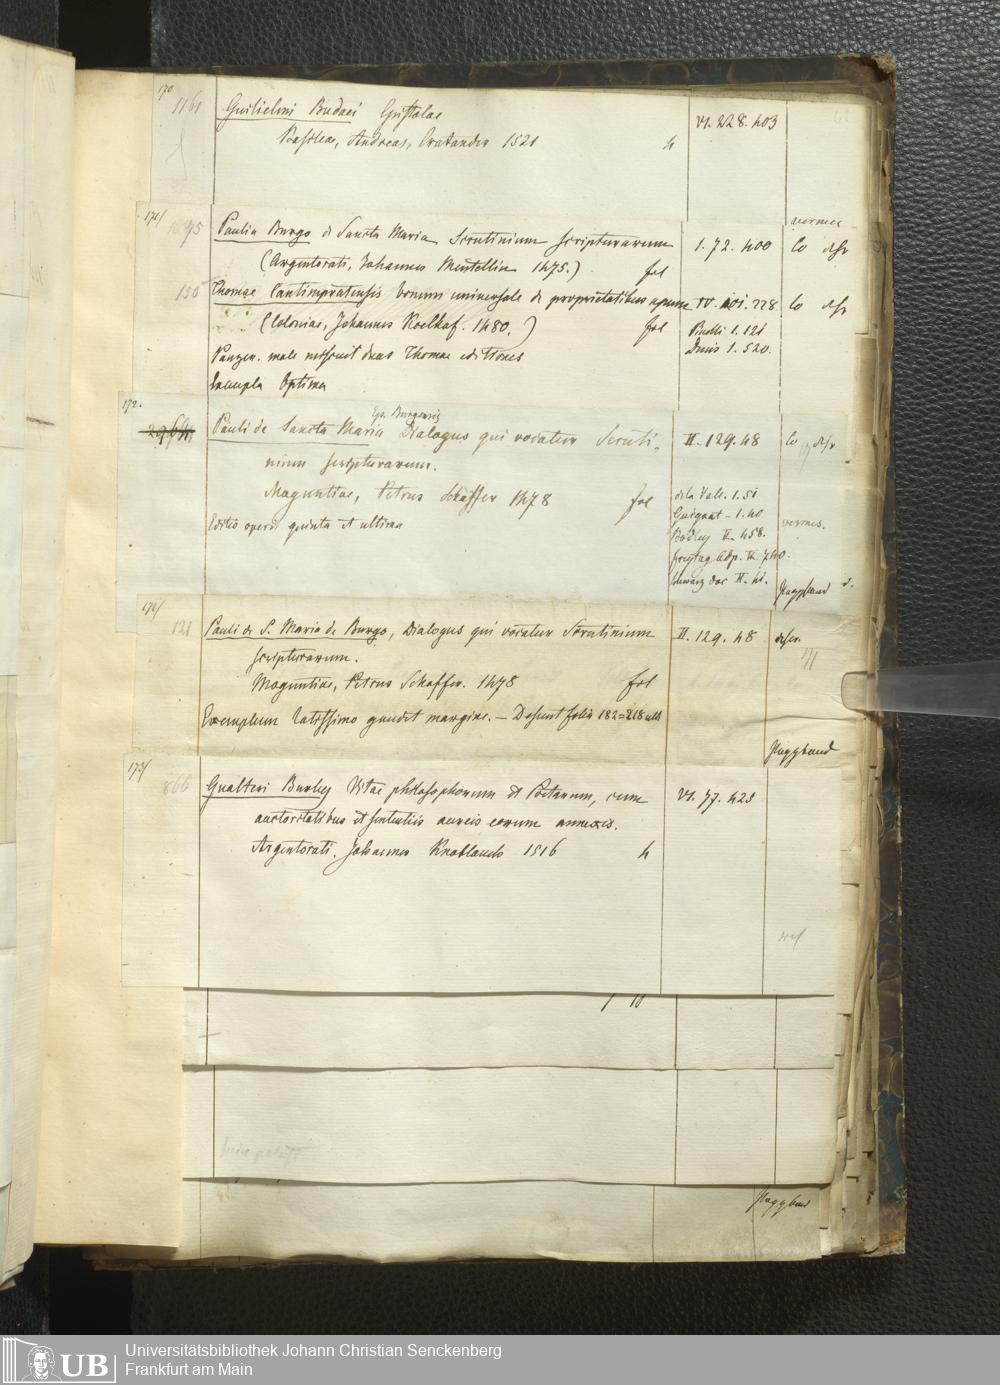 170
1161 Guilielmi Budaei Epistolae VI. 228. 403
Basileae, Andreas, Cratander 1521 4
171/
1075 Paulia Burgo de Sancta Maria Scrutinium scripturarum 1. 72. 400 Co desr
vermes
(Argentorati, Johannes Mentellin 1475.) fol
150 Thomae Cantimpratensis bonum universale de proprietatibus apum IV. 101. 228 Co desr
(Coloniae, Johannes Koelhof. 1480.) fol Pinelli 1. 121
Panzer. male miscuit duas Thomae editiones Denis 1. 520.
Exempla Optima
172.
Ep. Burgensis
2964 Pauli de Sancta Maria Dialogus qui vocatur Scruti- II. 129. 48 Co desr
nium scripturarum.
Maguntiae, Petrus Schöffer 1478 fol de la Vall. 1. 51
Editio operis quinta et ultima Guignat - 1. 40 vermes.
Bodley II. 458.
Freytag Adp. II. 740.
Schwarz doc II. 41. Pappband
172/
121 Pauli de S. Maria de Burgo, Dialogus qui vocatur Scrutinium II. 129. 48 descr.
scripturarum.
Maguntiae, Petrus Schoffer. 1478 fol
Exemplum latissimo gaudet margine. — Desunt folia 182=218 ult
Pappband
173/
866 Gualteri Burley Vitae philosophorum et Poetarum, cum VI. 77. 423
auctoritatibus et sententiis aureis eorum annexis.
Argentorati. Johannes Knoblauch 1516 4
Pappband
Universitätsbibliothek Johann Christian Senckenberg
Frankfurt am Main
UB